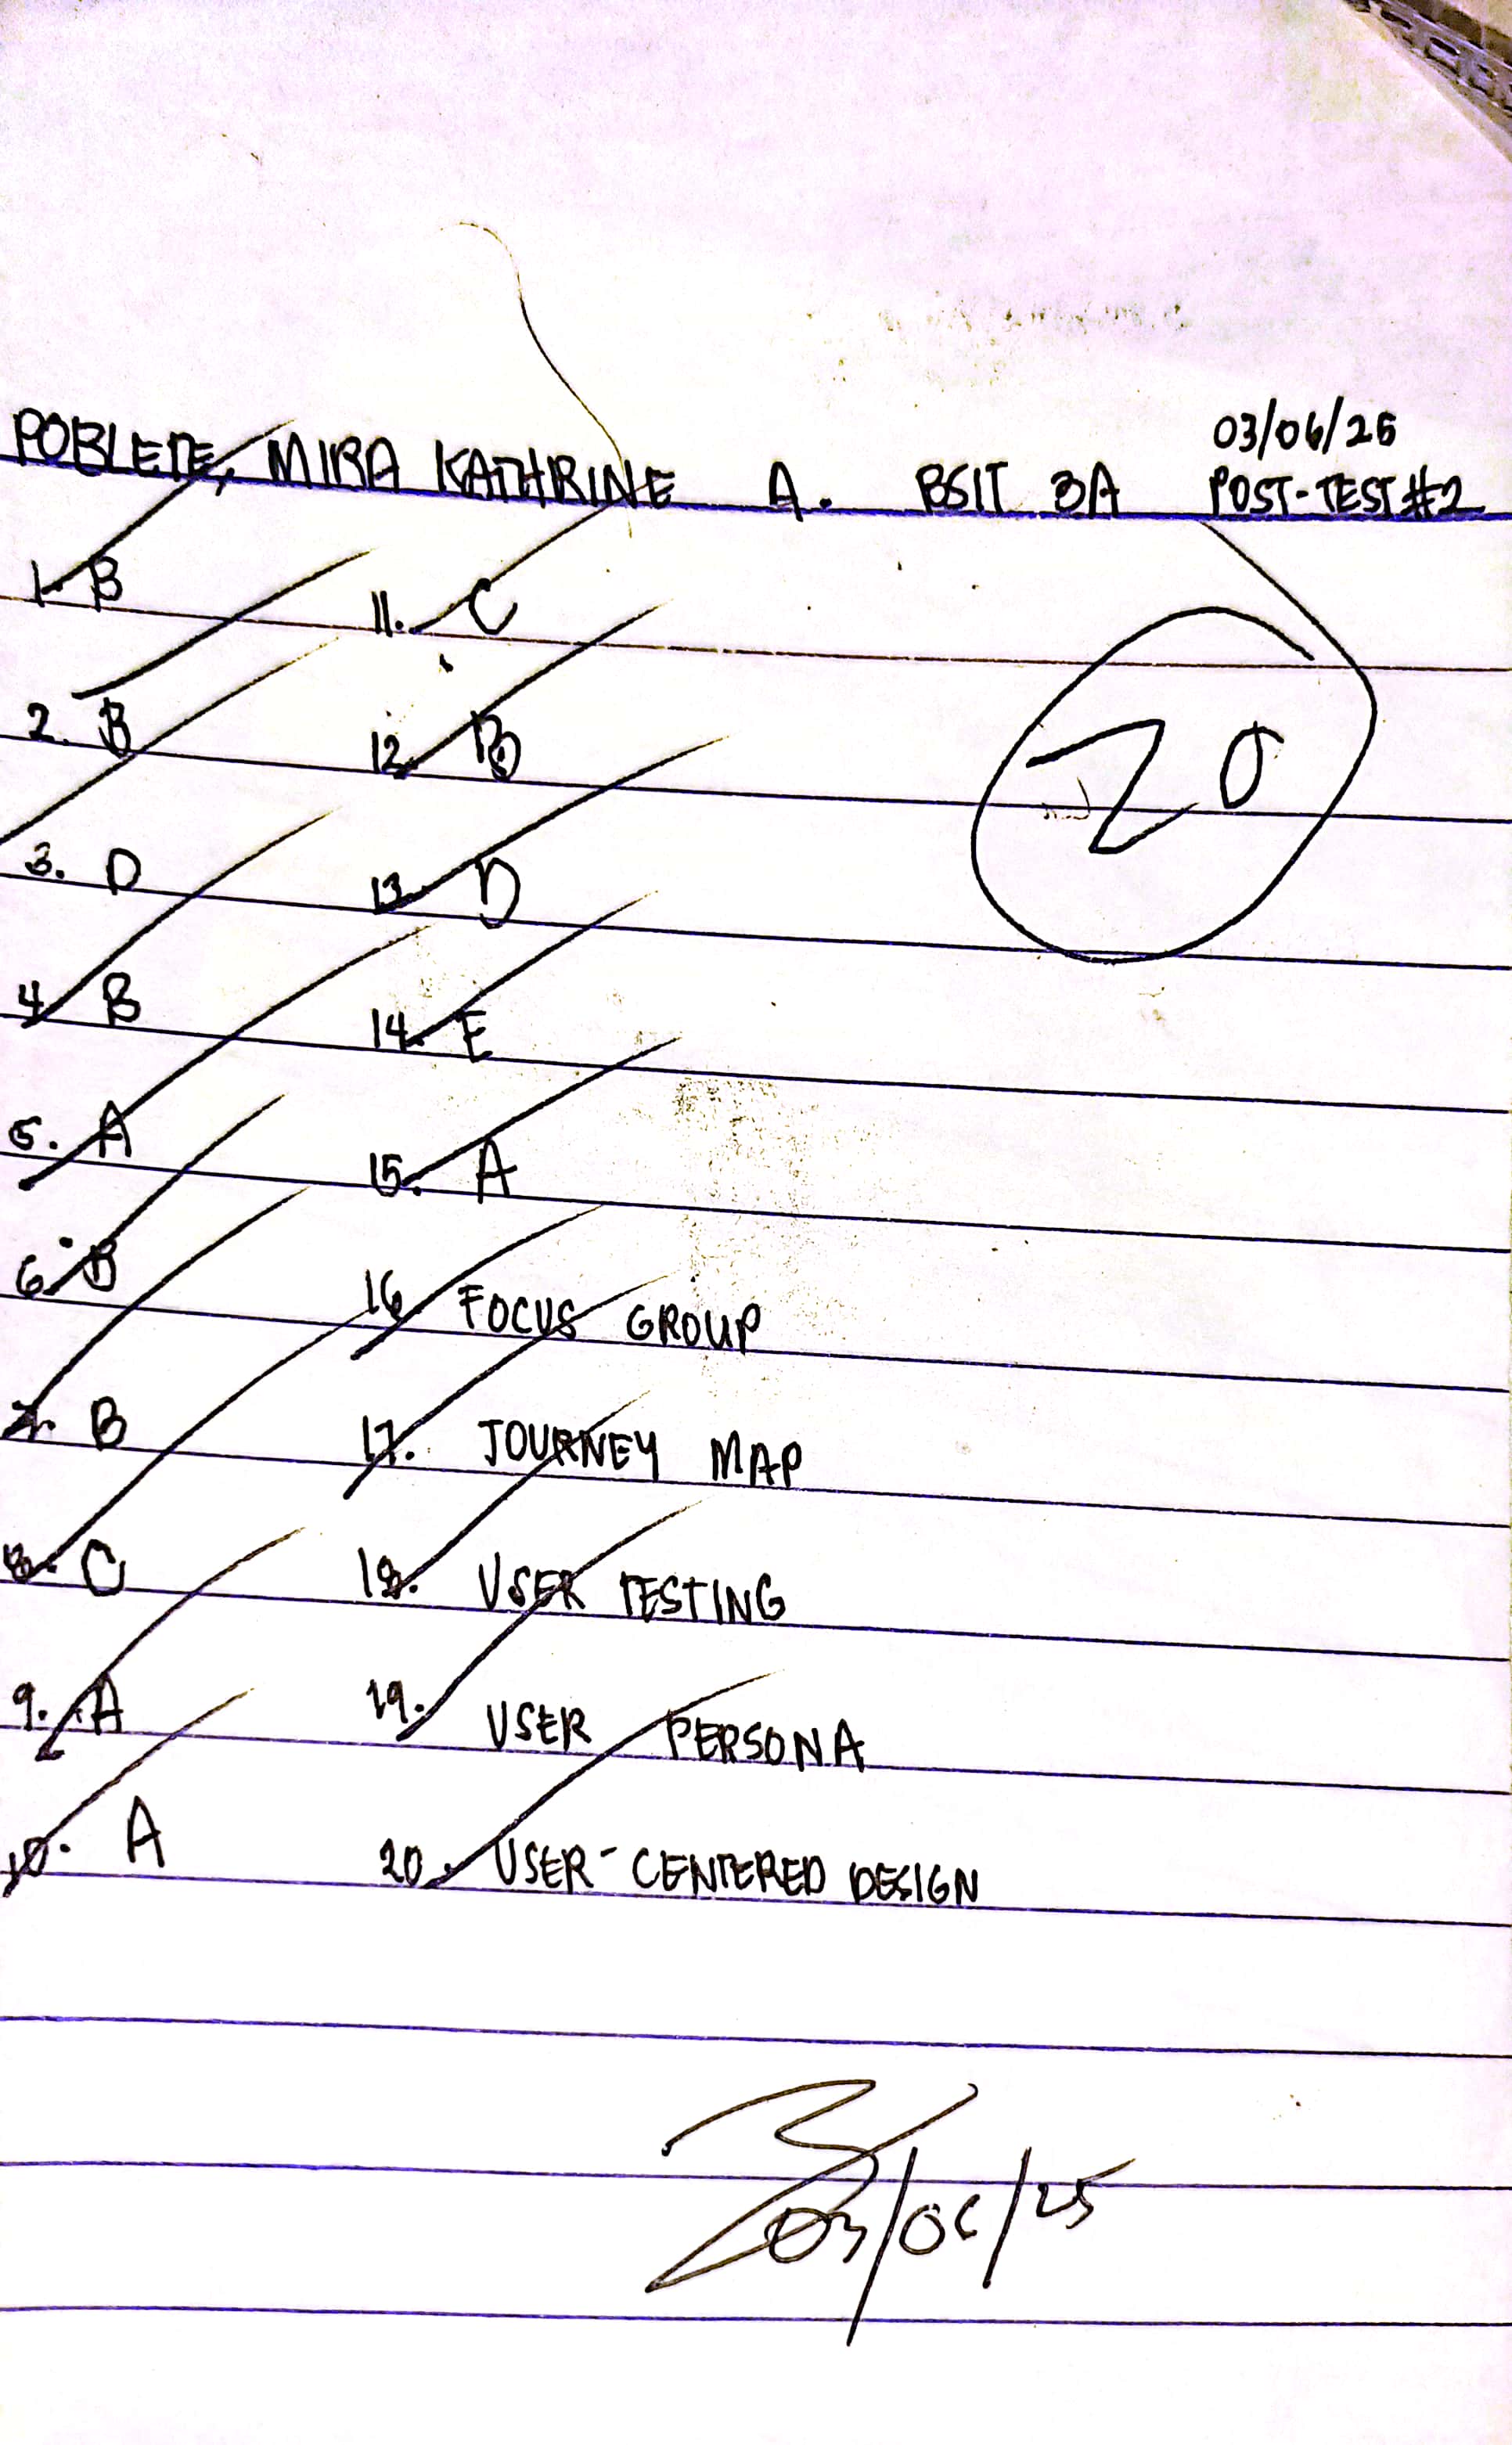 03/06/25
POBLETE, MIRA KATHRINE A. BSIT 3A POST-TEST #2
1. B
2. B
3. D
4. B
5. A
6. B
7. B
8. C
9. A
10. A
11. C
12. B
13. D
14. E
15. A
16. FOCUS GROUP
17. JOURNEY MAP
18. USER TESTING
19. USER PERSONA
20. USER-CENTERED DESIGN
20
03/06/25